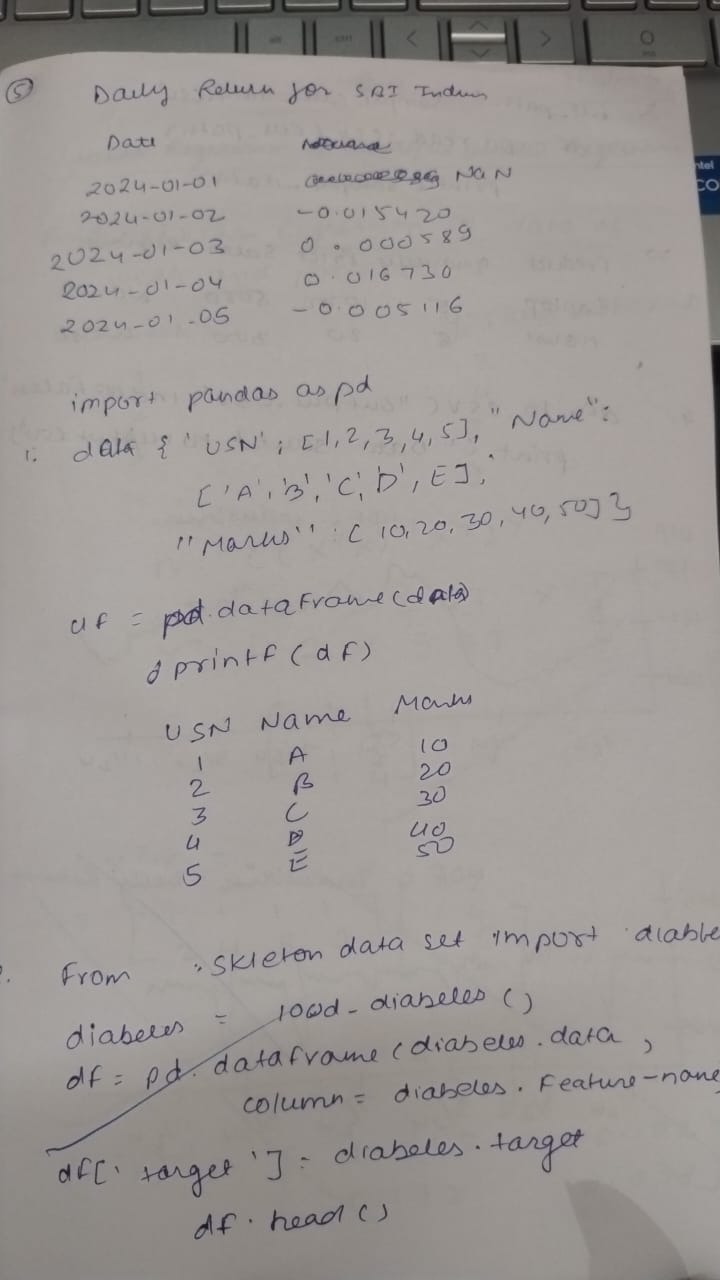 5 Daily Return for SBI Indus
Date
2024-01-01 NaN
2024-01-02 -0.015420
2024-01-03 0.000589
2024-01-04 0.016730
2024-01-05 -0.005116
import pandas as pd
1. data { 'USN' : [1,2,3,4,5], "Name":
['A','B','C','D', E],
"Marks" : [10,20,30,40,50]}
df = pd.dataframe(data)
printf(df)
USN Name Marks
1 A 10
2 B 20
3 C 30
4 D 40
5 E 50
From skleton data set import diabte
diabeles = load-diabeles ()
df = pd.dataframe(diabeles.data,
column = diabeles. Feature-name
df['target'] = diabeles.target
df.head()